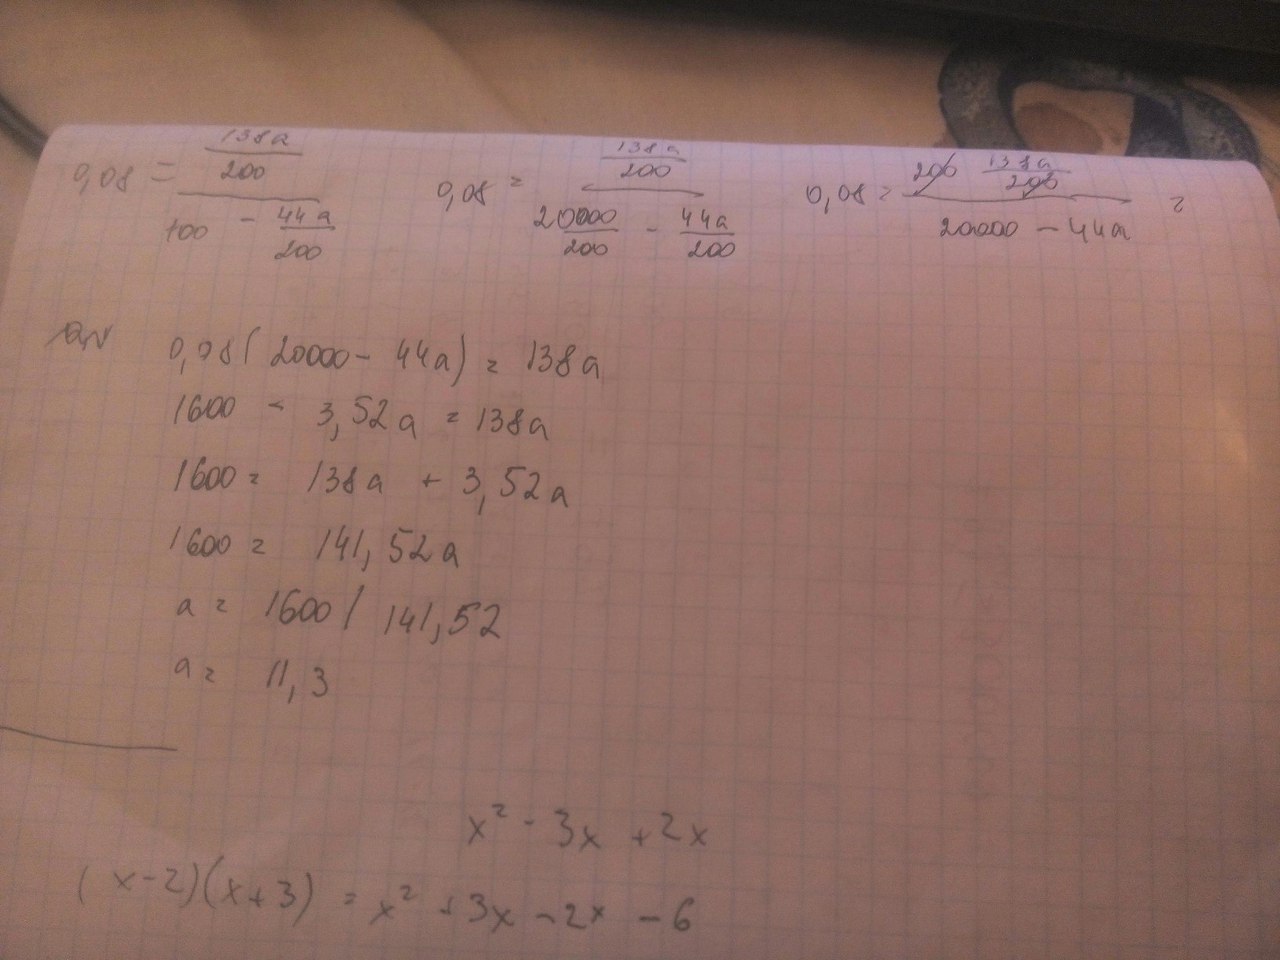 0,08 = (138a/200)/(100 - 44a/200) 0,08 = (138a/200)/(20000/200 - 44a/200) 0,08 = (200 138a/200)/(20000 - 44a) =
0,08(20000 - 44a) = 138a
1600 - 3,52a = 138a
1600 = 138a + 3,52a
1600 = 141,52a
a = 1600/141,52
a = 11,3
x² - 3x + 2x
(x-2)(x+3) = x² + 3x - 2x - 6